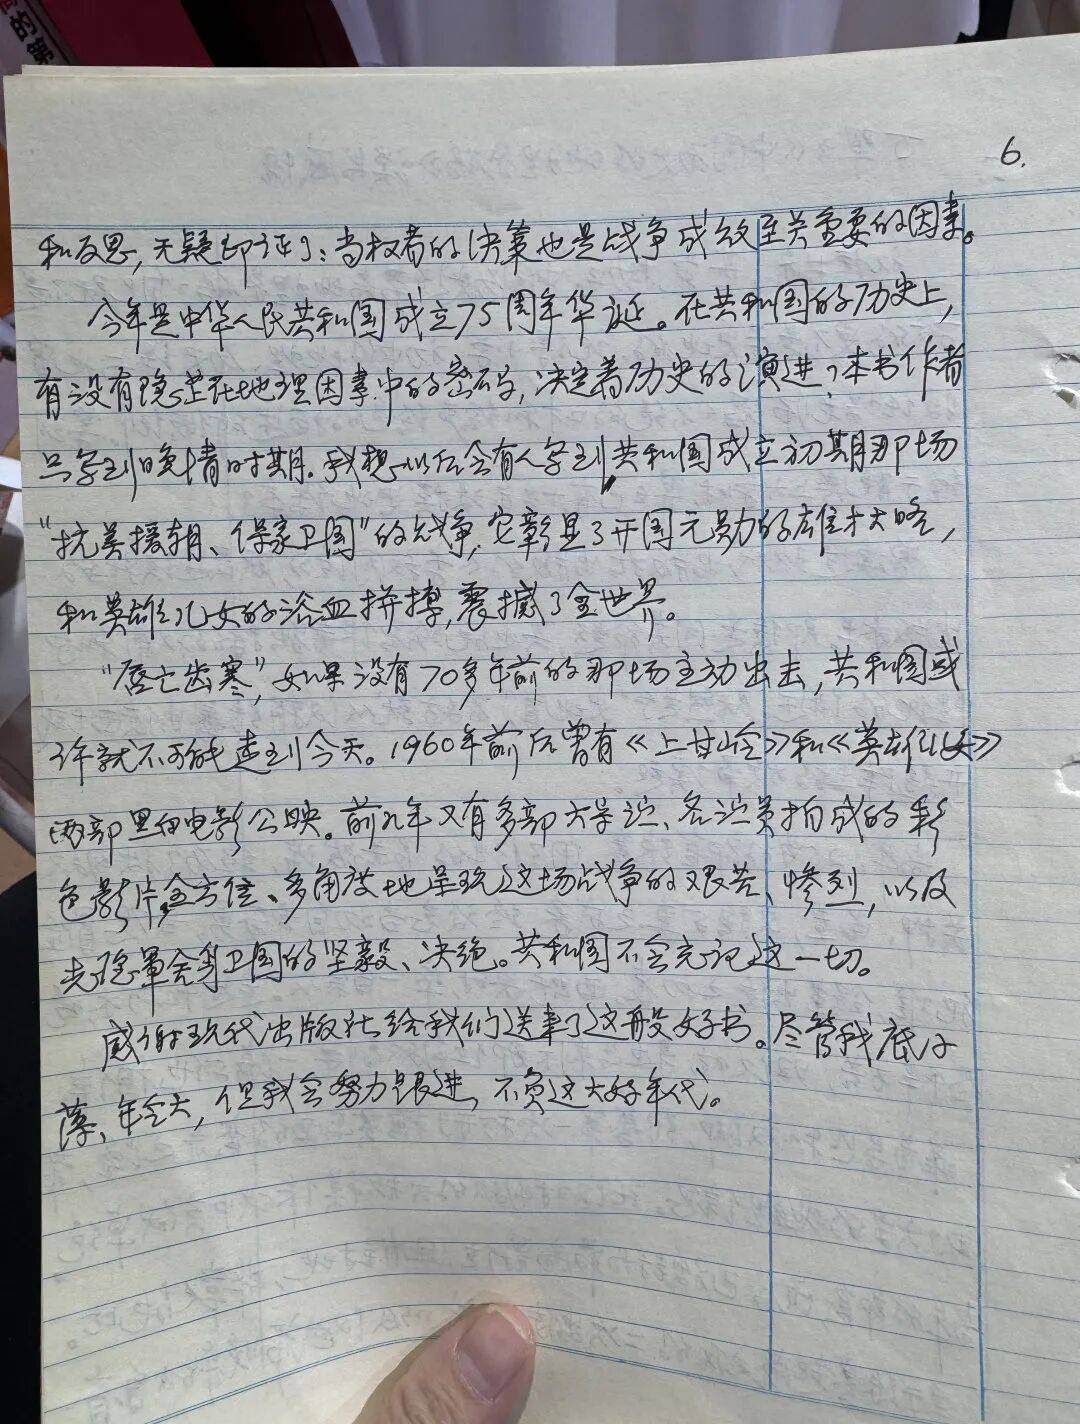 的第
6.
和反思，无疑印证了：当权者的决策也是战争成效至关重要的因素。
今年是中华人民共和国成立75周年华诞。在共和国的历史上，
有没有隐蔽在地理因素中的密码，决定着历史的演进？本书作者
只写到晚清时期。我想以后会有人写到共和国成立初期那场
“抗美援朝、保家卫国”的战争，它彰显了开国元勋的雄才大略，
和英雄儿女的浴血拼搏，震撼了全世界。
“唇亡齿寒”，如果没有70多年前的那场主动出击，共和国或
许就不可能走到今天。1960年前后曾有《上甘岭》和《英雄儿女》
两部黑白电影公映。前几年又有多部大导演、名演员拍成的彩
色影片，全方位、多角度地呈现这场战争的艰苦、惨烈，以及
先辈舍身卫国的坚毅、决绝。共和国不会忘记这一切。
感谢现代出版社给我们送来了这般好书。尽管我底子
薄、年令大，但我会努力跟进，不负这大好年代。